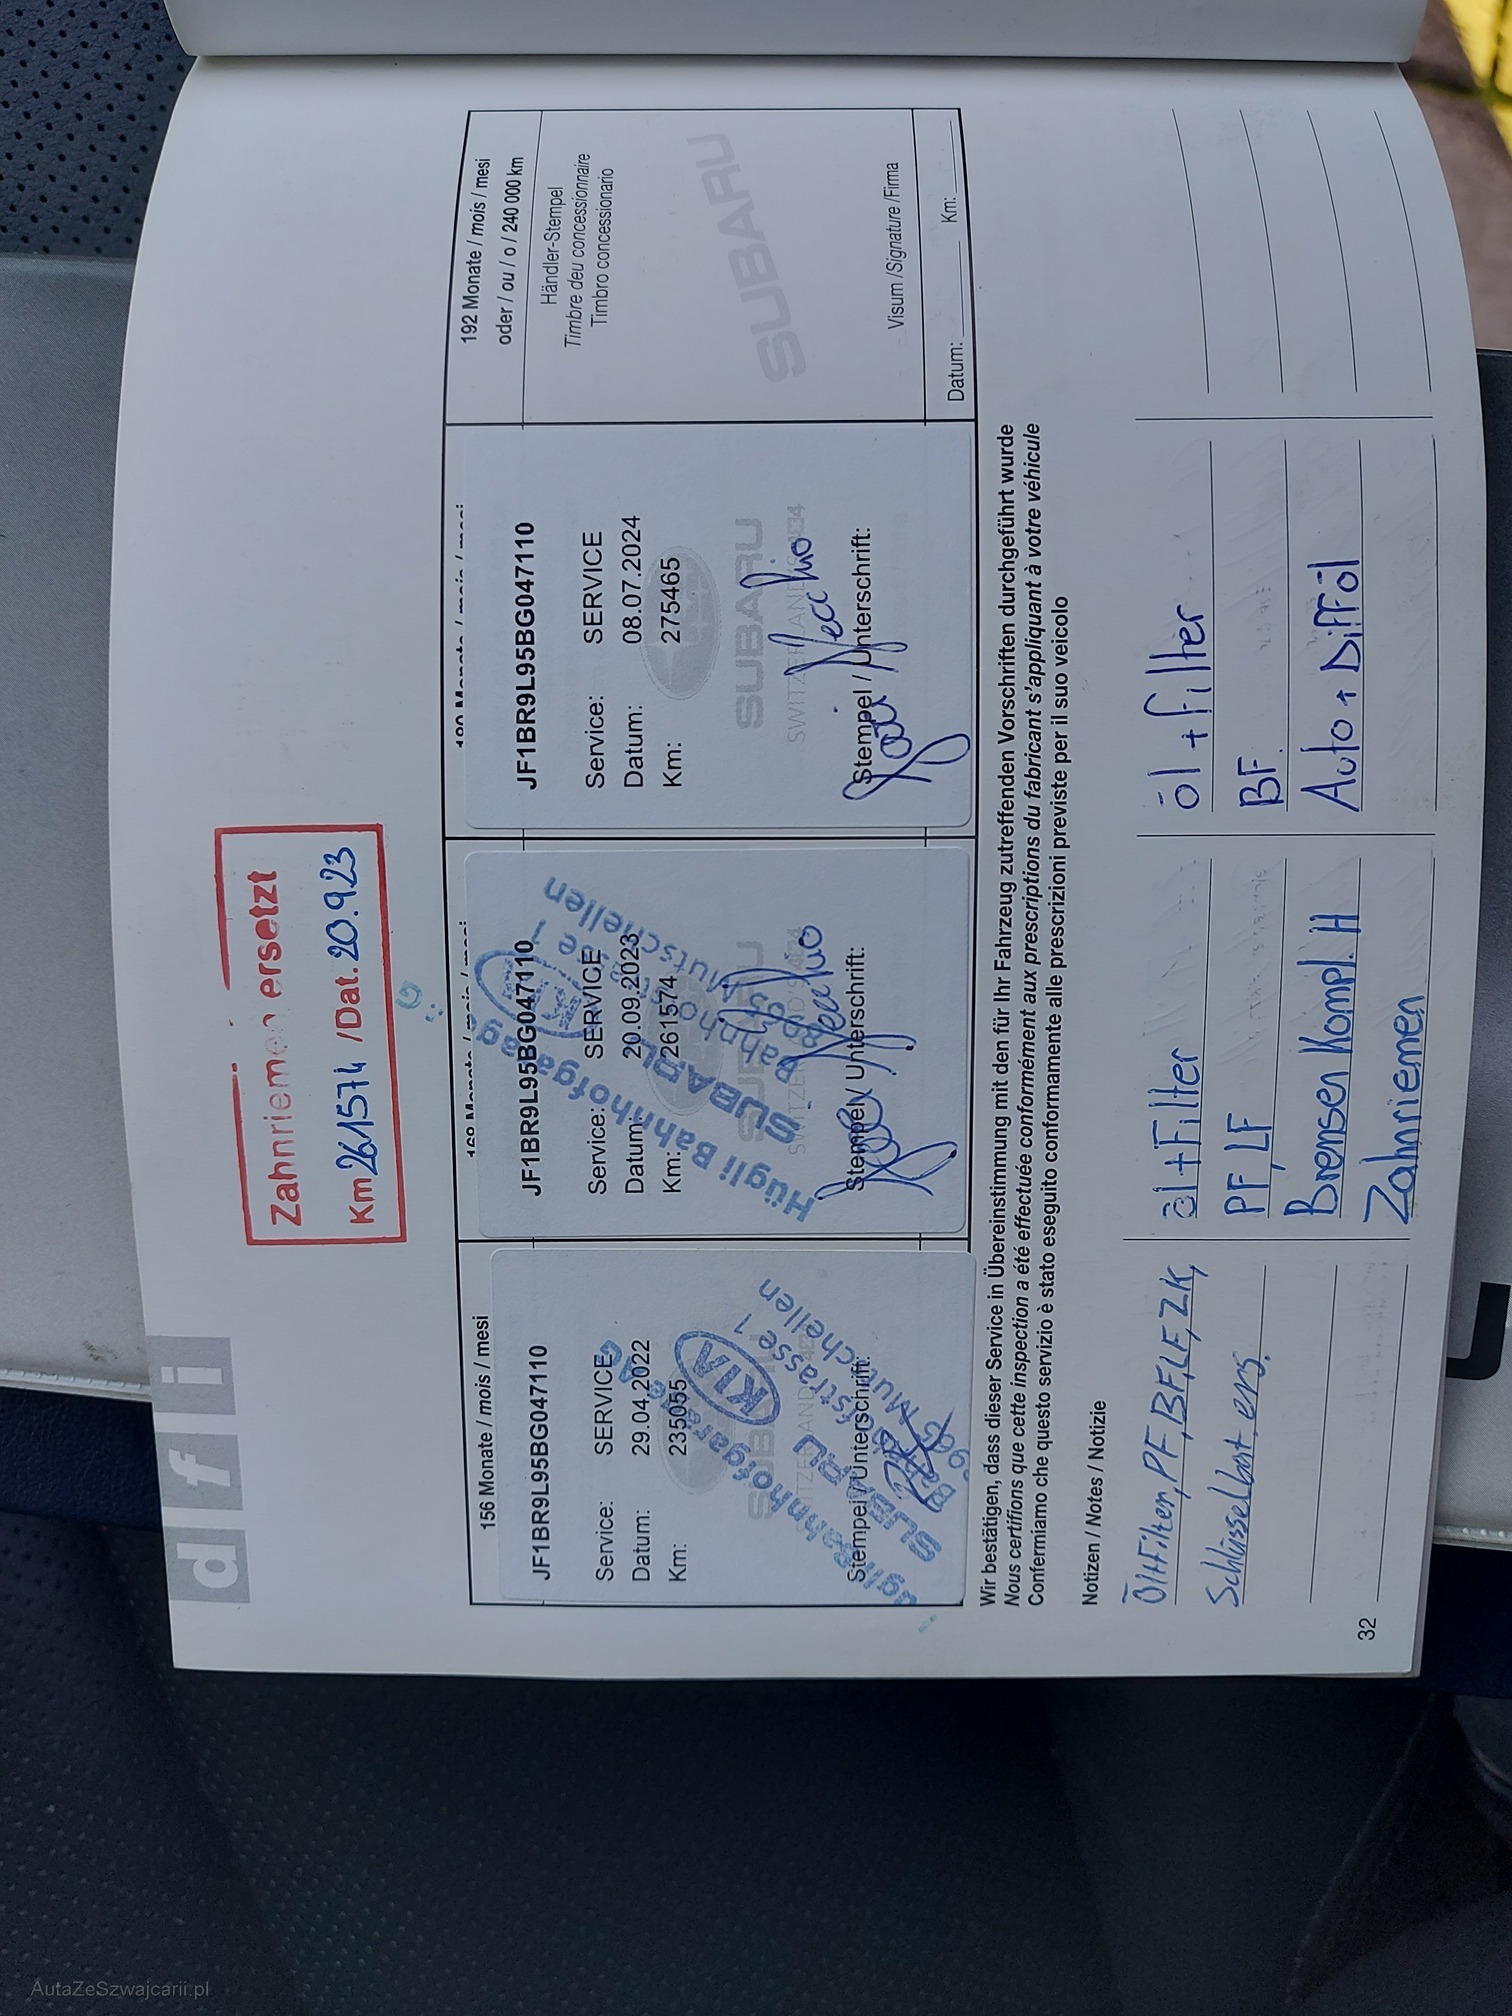 d f i
Zahnriemen ersetzt
Km 261574 /Dat. 20.9.23
156 Monate / mois / mesi
JF1BR9L95BG047110
Service: SERVICE
Datum: 29.04.2022
Km: 235055
Stempel / Unterschrift:
KIA
SUBARU
JF1BR9L95BG047110
Service: SERVICE
Datum: 20.09.2023
Km: 261574
Stempel / Unterschrift:
Hügli Bahnhofgarage
SUBARU
Mutschellen
JF1BR9L95BG047110
Service: SERVICE
Datum: 08.07.2024
Km: 275465
SUBARU
SWITZERLAND
Stempel / Unterschrift:
192 Monate / mois / mesi
oder / ou / o / 240 000 km
Händler-Stempel
Timbre deu concessionnaire
Timbro concessionario
SUBARU
Visum /Signature /Firma
Datum: Km:
Wir bestätigen, dass dieser Service in Übereinstimmung mit den für Ihr Fahrzeug zutreffenden Vorschriften durchgeführt wurde
Nous certifions que cette inspection a été effectuée conformément aux prescriptions du fabricant s'appliquant à votre véhicule
Confermiamo che questo servizio è stato eseguito conformamente alle prescrizioni previste per il suo veicolo
Notizen / Notes / Notizie
Öl+Filter, PF, BF, LF, ZK,
Schlüsselbat. ers.
öl+Filter
PF, LF
Bremsen Kompl. H
Zahnriemen
öl + fillter
BF
Auto + Diff öl
32
AutaZeSzwajcarii.pl